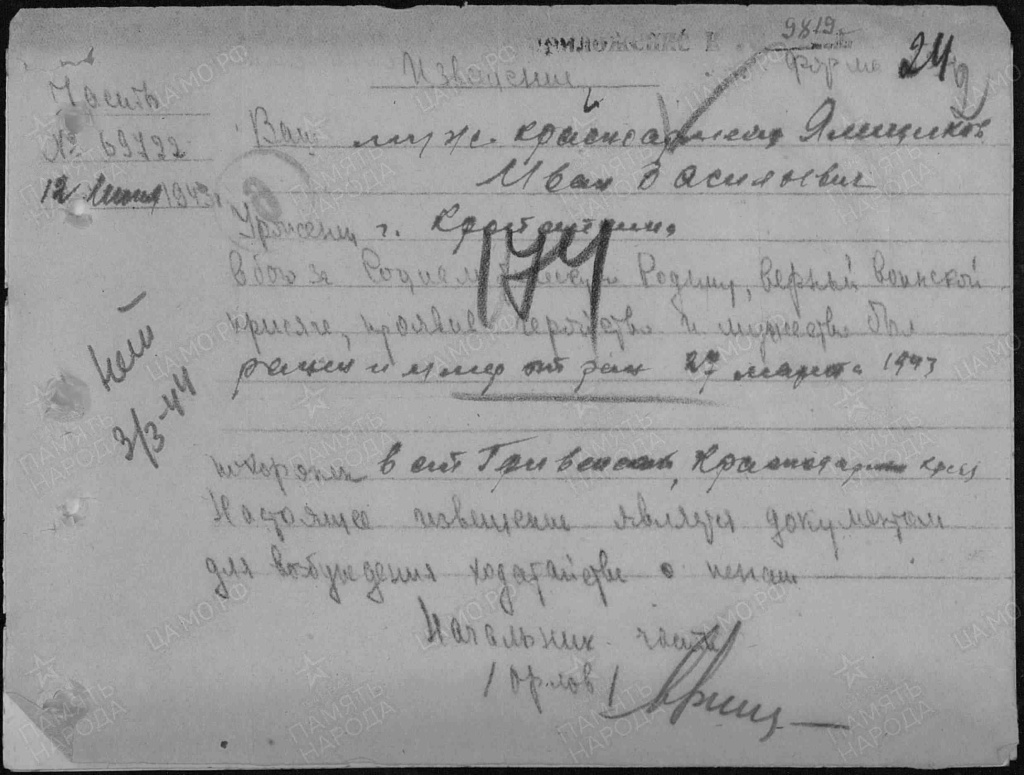 Приложение к
9819
Форма
24
Извещение
Часть
№ 69722
12 Июня 1943 г
Ваш муж красноармеец Ямщиков
Иван Васильевич
Уроженец г.
174
в бою за Социалистическую Родину, верный воинской
присяге, проявив геройство и мужество был
ранен и умер от ран 27 марта 1943
3/3-44
похоронен в ст Гривенская, Краснодарский край
Настоящее извещение является документом
для возбуждения ходатайства о пенсии
Начальник части
/Орлов/